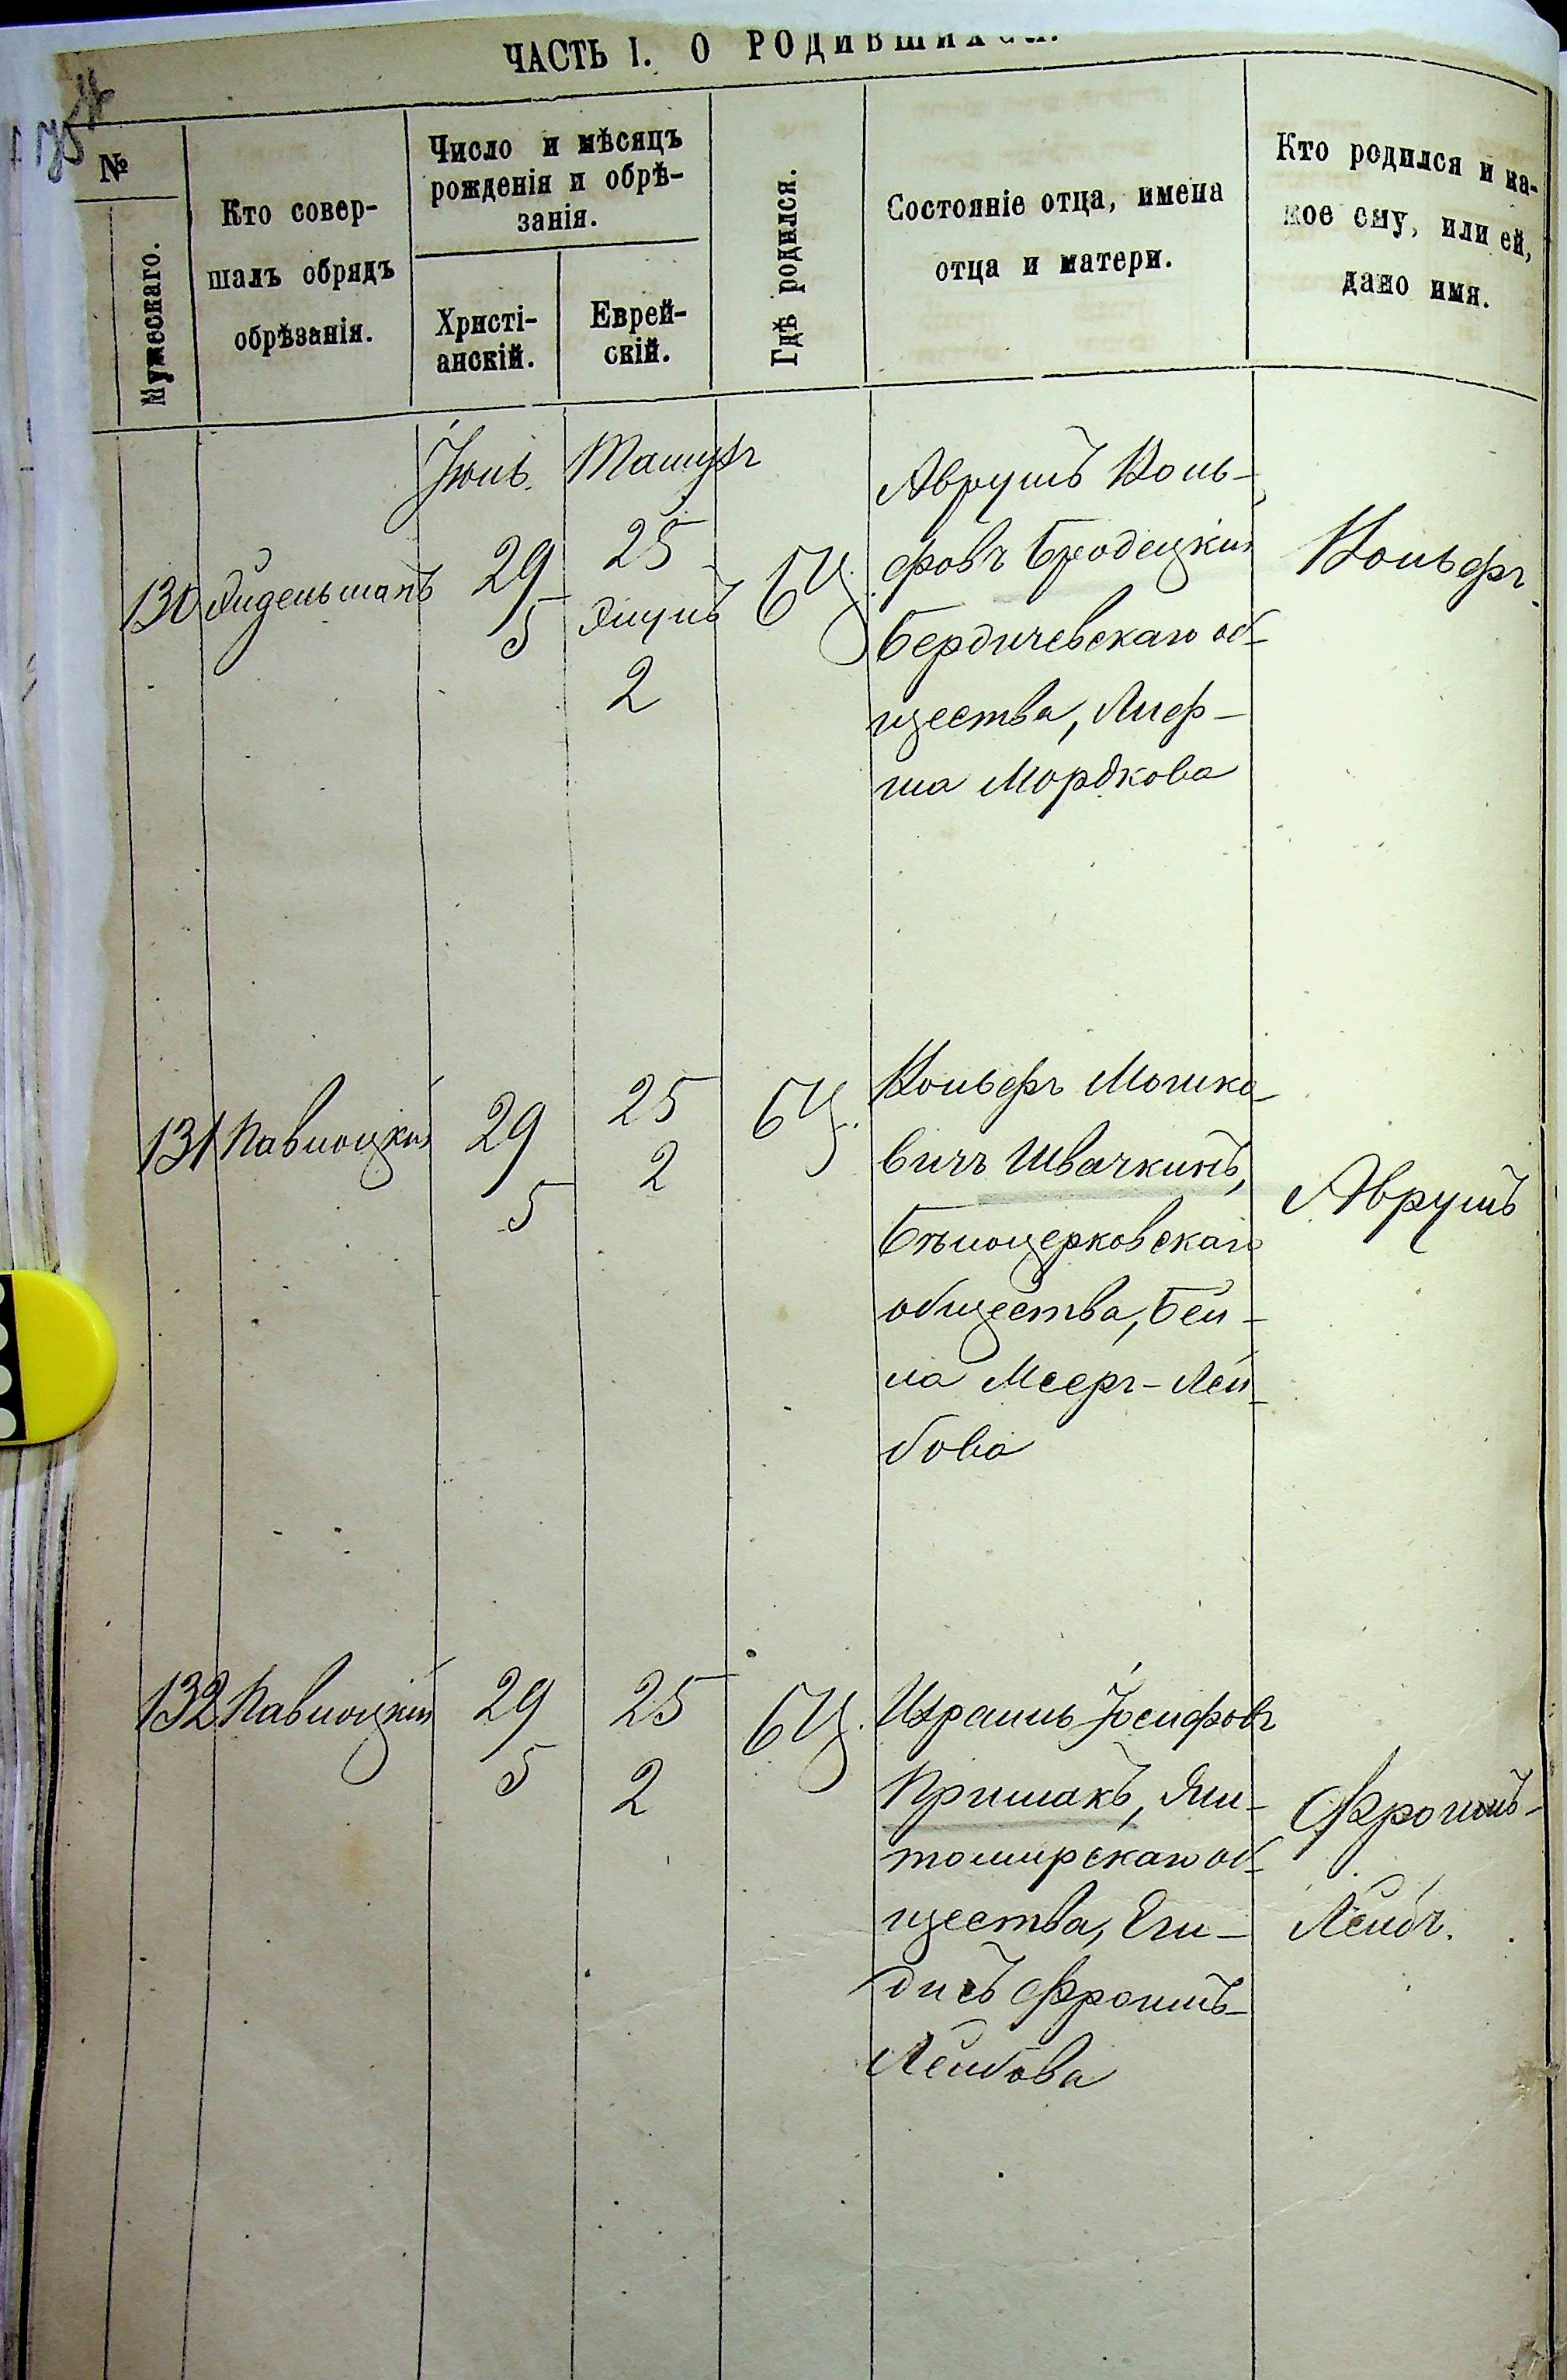 ЧАСТЬ I. О РОДИВШИХСЯ.
№
Мужескаго.
Кто совер-
шалъ обрядъ
обрѣзанія.
Число и мѣсяцъ
рожденія и обрѣ-
занія.
Христі-
анскій.
Еврей-
скій.
Гдѣ родился.
Состояніе отца, имена
отца и матери.
Кто родился и ка-
кое ему, или ей,
дано имя.
130
29
5
25
2
БЦ.
Аврумъ Воль-
фовъ Бродецкій
Бердичевскаго об-
щества,
ма Мордкова
Вольфъ
131 Паволоцкій
29
5
25
2
БЦ.
Вольфъ Мошко-
вичъ Швачкинъ,
Бѣлоцерковскаго
общества, Бей-
ла Мееръ-Лей-
бова
Аврумъ
132 Паволоцкій
29
5
25
2
БЦ.
Израиль Іосифовъ
Примакъ, Жи-
томирскаго об-
щества,
Фроимъ-
Лейбова
Фроимъ-
Лейбъ.